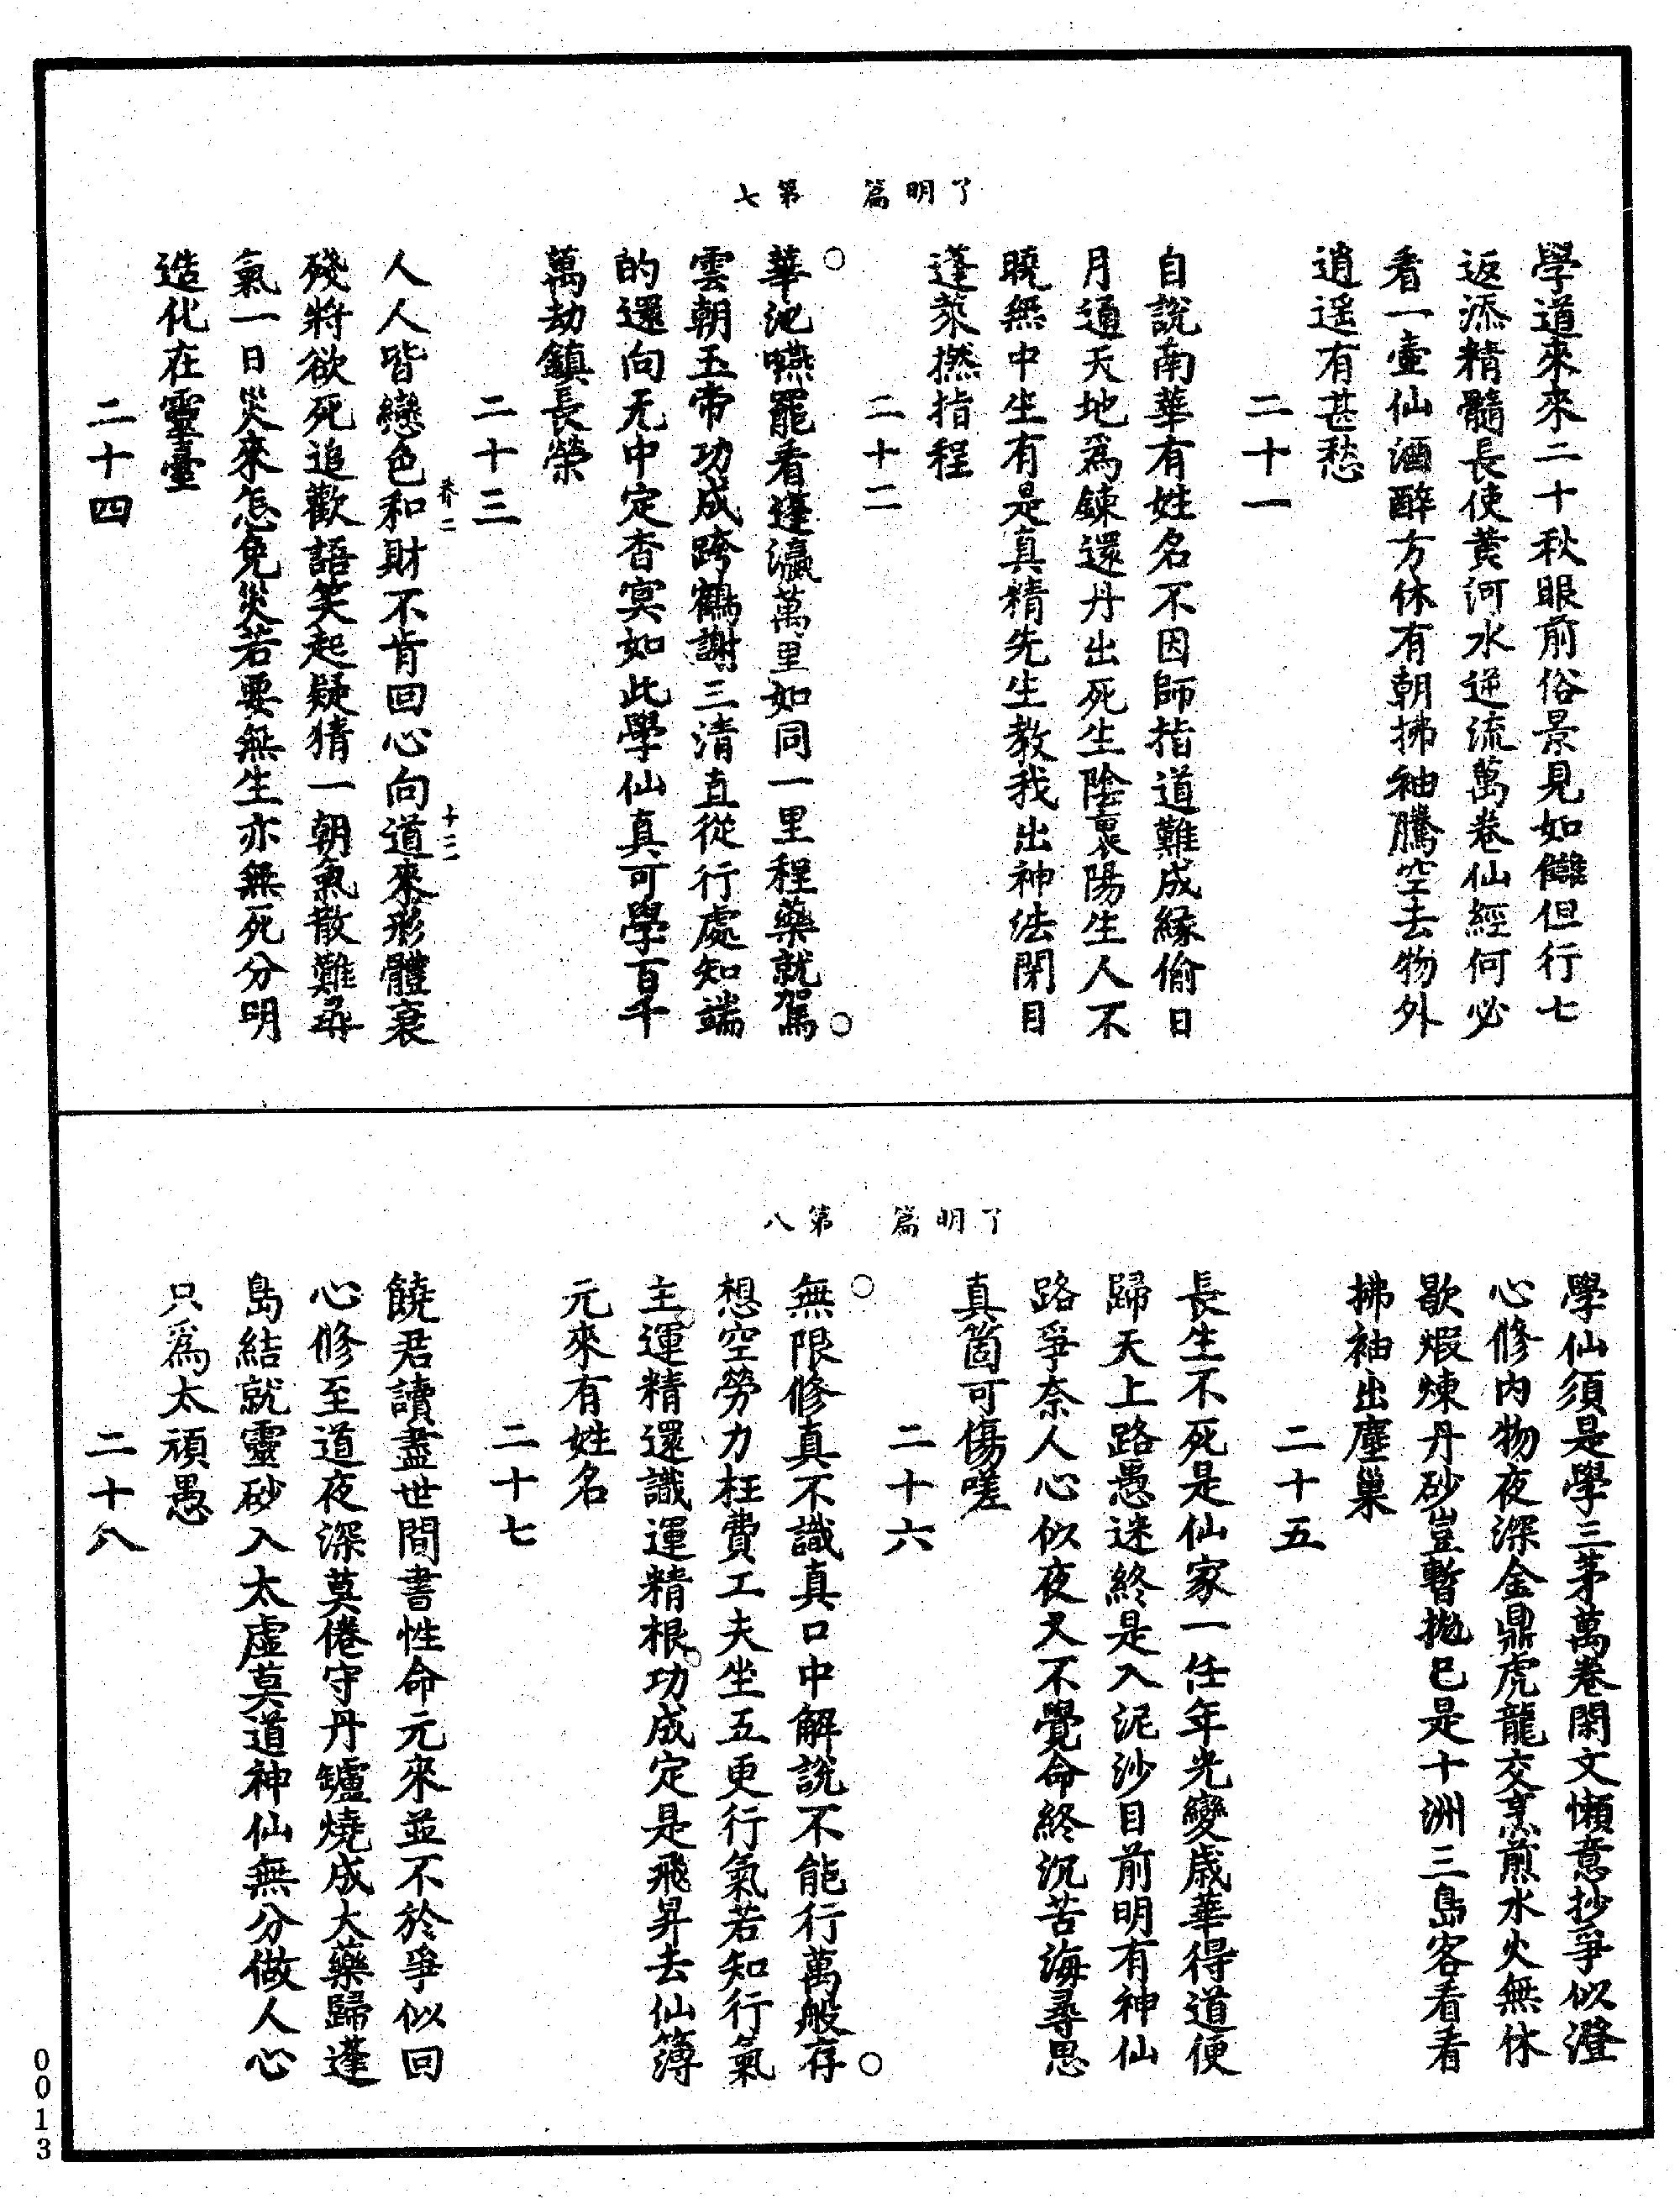 了明篇　第七
學道來來二十秋眼前俗景見如讎但行七
返添精髓長使黄河水逆流萬卷仙經何必
看一壷仙酒醉方休有朝拂袖騰空去物外
逍遥有甚愁
二十一
自說南華有姓名不因師指道難成緣偷日
月通天地爲鍊還丹出死生陰裏陽生人不
曉無中生有是真精先生教我出神法閉目
蓬萊撚指程
二十二
華池嚥罷看蓬瀛萬里如同一里程藥就駕
雲朝玉帝功成跨鶴謝三清直從行處知端
的還向无中定杳冥如此學仙真可學百千
萬劫鎮長榮
二十三
卷二　十三
人人皆戀色和財不肯回心向道來形體衰
殘將欲死追歡語笑起疑猜一朝氣散難尋
氣一日災來怎免災若要無生亦無死分明
造化在靈臺
二十四
了明篇　第八
學仙須是學三茅萬卷閑文懶意抄爭似澄
心修内物夜深金鼎虎龍交烹煎水火無休
歇煅煉丹砂豈暫抛已是十洲三島客看看
拂袖出塵巢
二十五
長生不死是仙家一任年光變歲華得道便
歸天上路愚迷終是入泥沙目前明有神仙
路爭奈人心似夜叉不覺命終沉苦海尋思
真箇可傷嗟
二十六
無限修真不識真口中解說不能行萬般存
想空勞力枉費工夫坐五更行氣若知行氣
主運精還識運精根功成定是飛昇去仙簿
元來有姓名
二十七
饒君讀盡世間書性命元來並不於爭似回
心修至道夜深莫倦守丹鑪燒成大藥歸蓬
島結就靈砂入太虛莫道神仙無分做人心
只爲太頑愚
二十八
0013